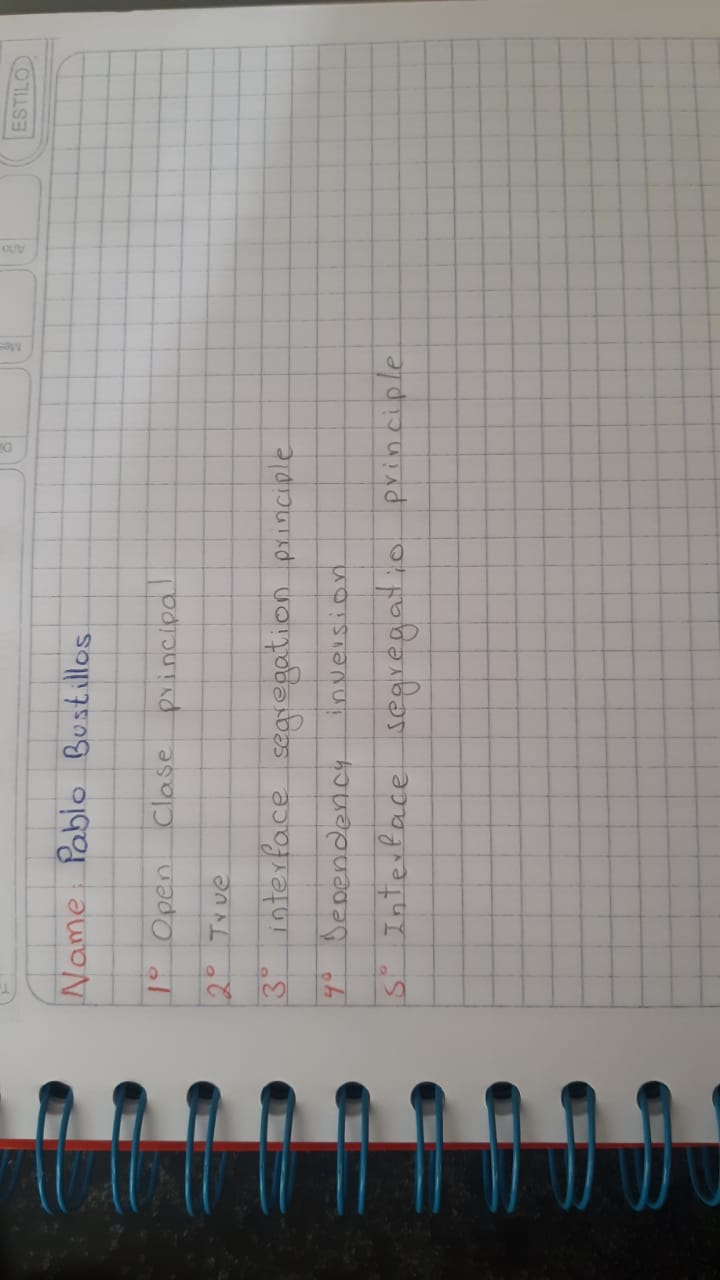 ESTILO
Año
Mes
Name: Pablo Bustillos
1° Open Clase principal
2° True
3° interface segregation principle
4° Dependency inversion
5° Interface segregatio principle